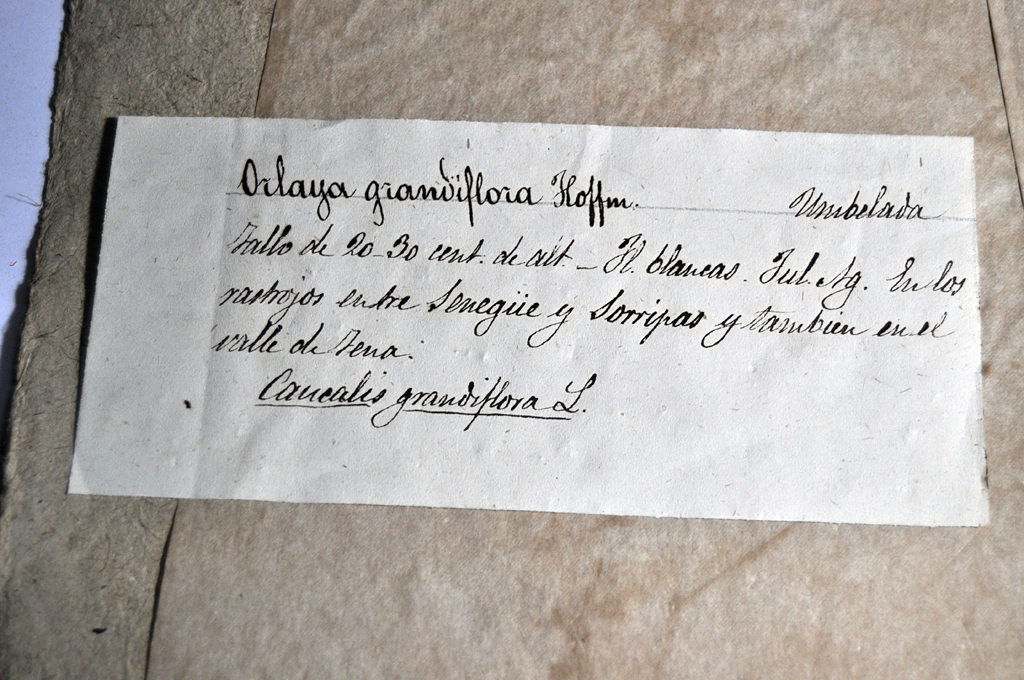 Orlaya grandiflora Hoffm. Umbelada
Tallo de 20-30 cent. de alt. – Fl. blancas. Jul. Ag. En los
rastrojos entre Senegüe y Sorripas y tambien en el
valle de Tena.
Caucalis grandiflora L.